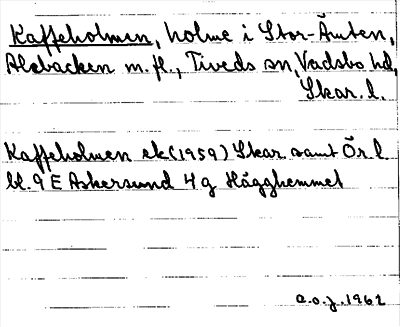 Kaffeholmen, holme i Stor-Ämten,
Alebacken m.fl., Tiveds sn, Vadsbo hd,
Skar. l.
Kaffeholmen ek (1959) Skar. samt Ör. l.
bl. 9 E Askersund 4 g Hägghemmet
a.o.j. 1962